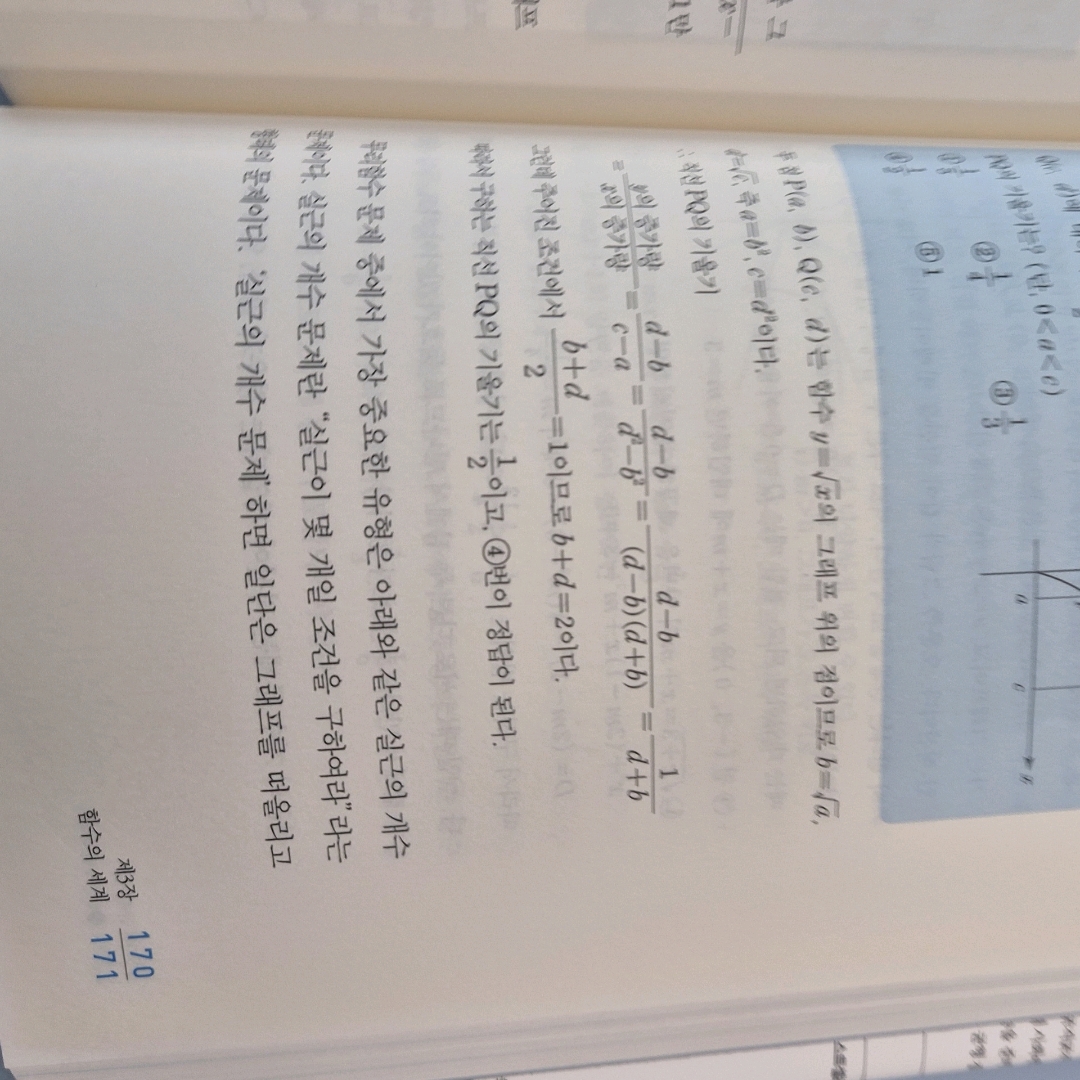 PQ의 기울기는? (단, 0<a<c)
② 1/4 ③ 1/3
⑤ 1
a c x
두 점 P(a, b), Q(c, d)는 함수 y=√x의 그래프 위의 점이므로 b=√a,
d=√c, 즉 a=b², c=d²이다.
∴ 직선 PQ의 기울기
= y의 증가량/x의 증가량 = d-b/c-a = d-b/d²-b² = d-b/(d-b)(d+b) = 1/d+b
그런데 주어진 조건에서 b+d/2=1이므로 b+d=2이다.
따라서 구하는 직선 PQ의 기울기는 1/2이고, ④번이 정답이 된다.
무리함수 문제 중에서 가장 중요한 유형은 아래와 같은 실근의 개수
문제이다. 실근의 개수 문제란 “실근이 몇 개일 조건을 구하여라”라는
형태의 문제이다. ‘실근의 개수 문제’ 하면 일단은 그래프를 떠올리고
제3장
함수의 세계
170
171